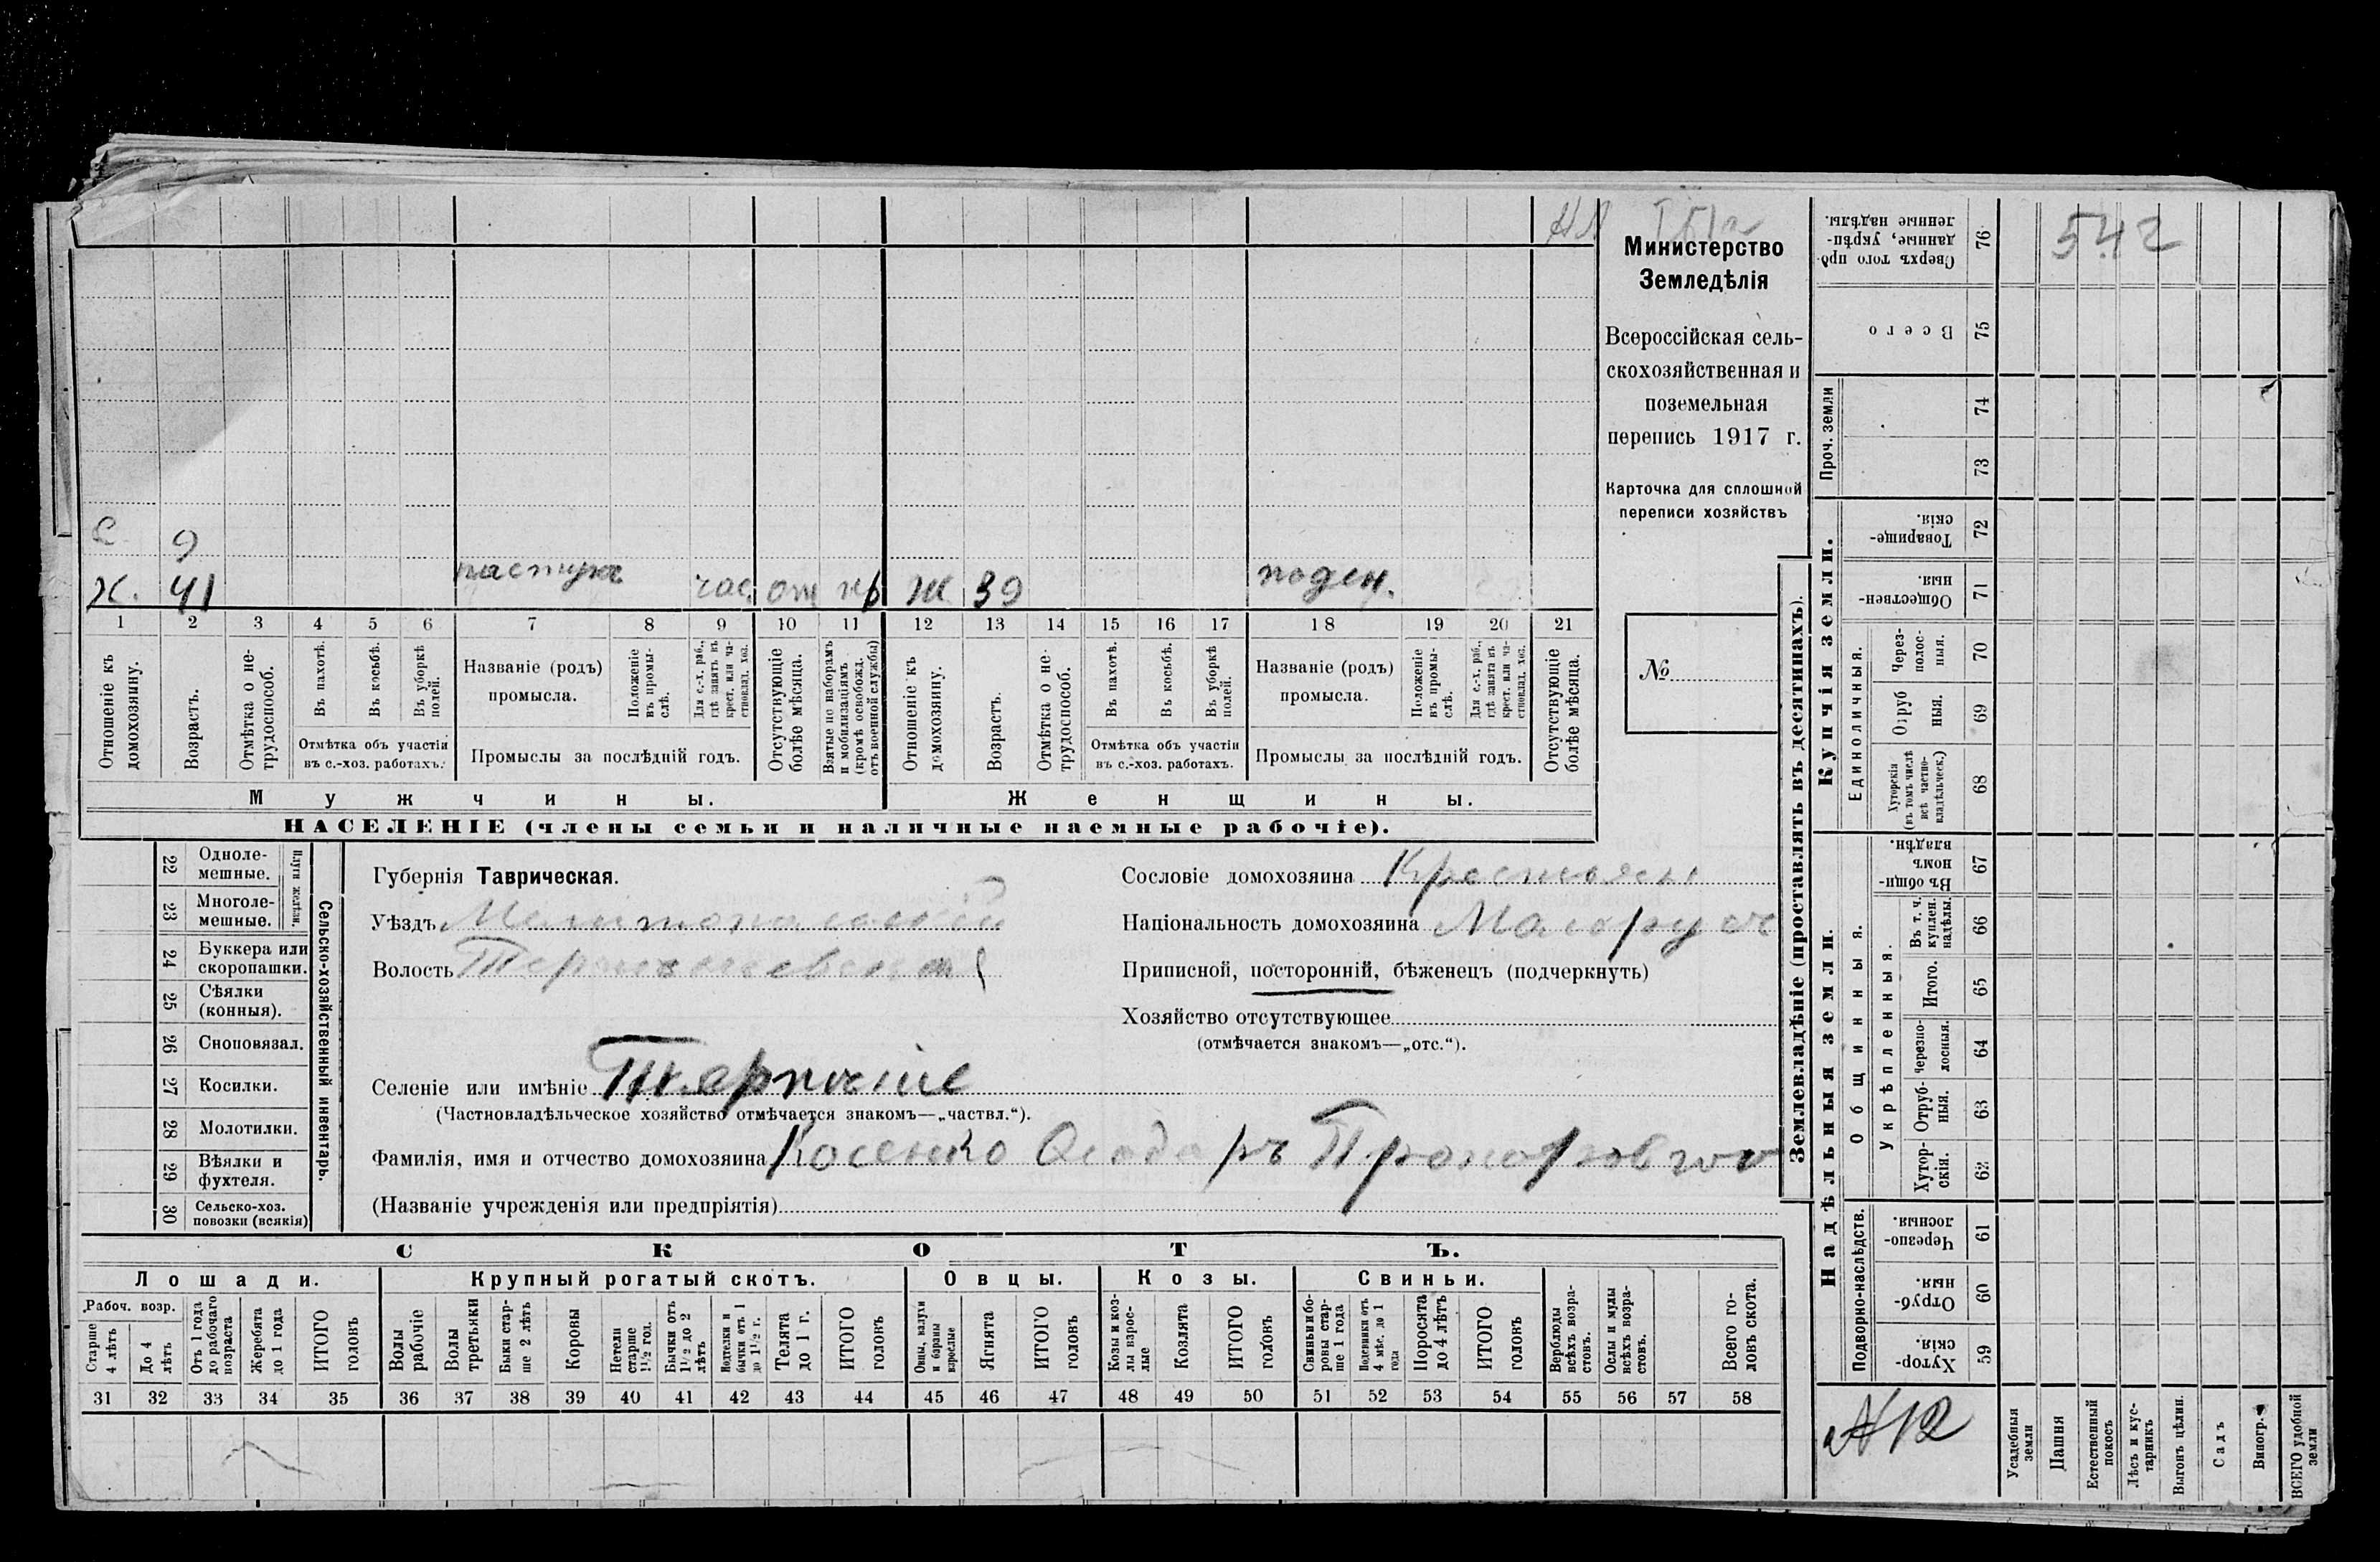 542
Министерство
Земледѣлія
Всероссійская сель-
скохозяйственная и
поземельная
перепись 1917 г.
Карточка для сплошной
переписи хозяйствъ
№
с 9
х. 41 пастухъ час. от Ж 39 поден.
1 2 3 4 5 6 7 8 9 10 11 12 13 14 15 16 17 18 19 20 21
Отношеніе къ домохозяину.
Возрастъ.
Отмѣтка о не-трудоспособ.
Въ пахотѣ.
Въ косьбѣ.
Въ уборкѣ полей.
Отмѣтка объ участіи
въ с.-хоз. работахъ.
Названіе (родъ)
промысла.
Положеніе въ промы-слѣ.
Для с.-х. раб., гдѣ занятъ въ крест. или ча-стновлад. хоз.
Промыслы за послѣдній годъ.
Отсутствующіе болѣе мѣсяца.
Взятые по наборамъ и мобилизаціямъ (кромѣ освобожд. отъ военной службы)
Отношеніе къ домохозяину.
Возрастъ.
Отмѣтка о не-трудоспособ.
Въ пахотѣ.
Въ косьбѣ.
Въ уборкѣ полей.
Отмѣтка объ участіи
въ с.-хоз. работахъ.
Названіе (родъ)
промысла.
Положеніе въ промы-слѣ.
Для с.-х. раб., гдѣ занята въ крест. или ча-стновлад. хоз.
Промыслы за послѣдній годъ.
Отсутствующіе болѣе мѣсяца.
Мужчины. Женщины.
НАСЕЛЕНІЕ (члены семьи и наличные наемные рабочіе).
22 Одноле-мешные.
23 Многоле-мешные.
Плуги желѣзн.
24 Буккера или скоропашки.
25 Сѣялки (конныя).
26 Сноповязал.
27 Косилки.
28 Молотилки.
29 Вѣялки и фухтеля.
30 Сельско-хоз. повозки (всякія)
Сельско-хозяйственный инвентарь.
Губернія Таврическая.
Уѣздъ Мелитопольскій
Волость
Сословіе домохозяина Крестьян
Національность домохозяина Малорус
Приписной, посторонній, бѣженецъ (подчеркнуть)
Хозяйство отсутствующее
(отмѣчается знакомъ—„отс.“).
Селеніе или имѣніе Терпѣніе
(Частновладѣльческое хозяйство отмѣчается знакомъ—„частвл.“).
Фамилія, имя и отчество домохозяина Косенко Прокофьевич
(Названіе учрежденія или предпріятія)
СКОТЪ.
Лошади. Крупный рогатый скотъ. Овцы. Козы. Свиньи.
Рабоч. возр.
Старше 4 лѣтъ
До 4 лѣтъ
Отъ 1 года до рабочаго возраста
Жеребята до 1 года
ИТОГО головъ
Волы рабочіе
Волы третьяки
Быки стар-ше 2 лѣтъ
Коровы
Нетели старше 1½ год.
Бычки отъ 1½ до 2 лѣтъ
Нетелки и бычки отъ 1 до 1½ г.
Телята до 1 г.
ИТОГО головъ
Овцы, валухи и бараны взрослые
Ягнята
ИТОГО головъ
Козы и коз-лы взрос-лые
Козлята
ИТОГО головъ
Свиньи и бо-ровы стар-ше 1 года
Подсвинки отъ 4 мѣс. до 1 года
Поросята до 4 лѣтъ
ИТОГО головъ
Верблюды всѣхъ возра-стовъ.
Ослы и мулы всѣхъ возра-стовъ.
Всего го-ловъ скота.
31 32 33 34 35 36 37 38 39 40 41 42 43 44 45 46 47 48 49 50 51 52 53 54 55 56 57 58
Землевладѣніе (проставлять въ десятинахъ).
76 Сверхъ того про-данные, укрѣп-ленные надѣлы.
75 Всего
74
73
Проч. земли
Купчія земли.
72 Товарище-скія.
71 Обществен-ныя.
Единоличныя.
70 Через-полос-ныя.
69 Отруб ныя.
68 Хуторскія (въ томъ числѣ всѣ частно-владѣльческ.)
Надѣльныя земли.
Общинныя.
67 Въ общин-номъ владѣн.
Укрѣпленныя.
66 Въ т. ч. куплен. надѣлы.
65 Итого.
64 Черезпо-лосныя.
63 Отруб-ныя.
62 Хутор-скія.
Подворно-наслѣдств.
61 Черезпо-лосныя.
60 Отруб-ныя.
59 Хутор-скія.
№12
Усадебныя земли
Пашня
Естественный покосъ
Лѣсъ и кус-тарникъ
Выгонъ цѣлин.
Садъ
Виногр.
ВСЕГО удобной земли